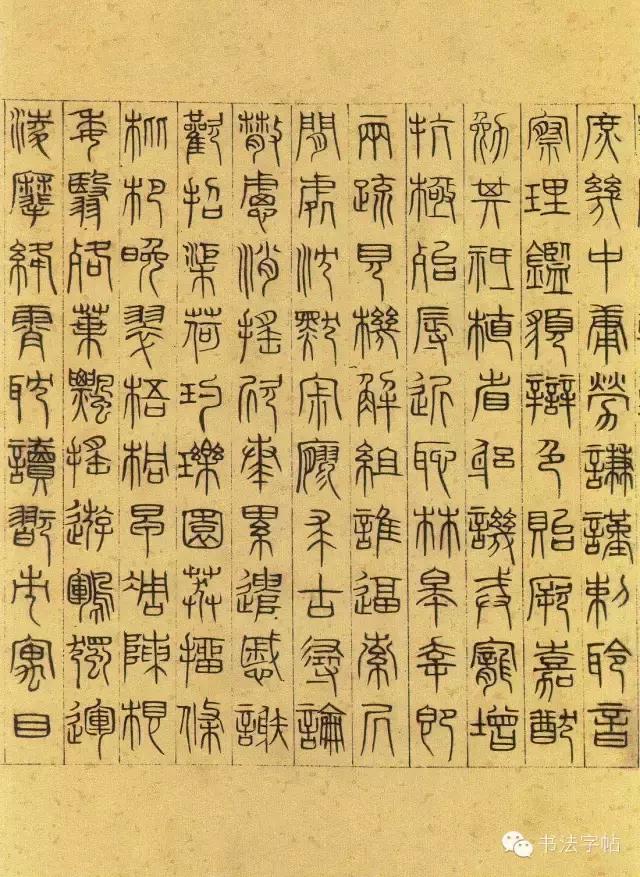 庶幾中庸勞謙謹敕聆音
察理鑑貌辯色貽厥嘉猷
勉其祗植省躬譏誡寵增
抗極殆辱近恥林皋幸即
兩疏見機解組誰逼索居
閒處沈默寂寥求古尋論
散慮逍遙欣奏累遣慼謝
歡招渠荷的歷園莽抽條
枇杷晚翠梧桐早凋陳根
委翳落葉飄颻遊鵾獨運
凌摩絳霄耽讀翫市寓目
书法字帖